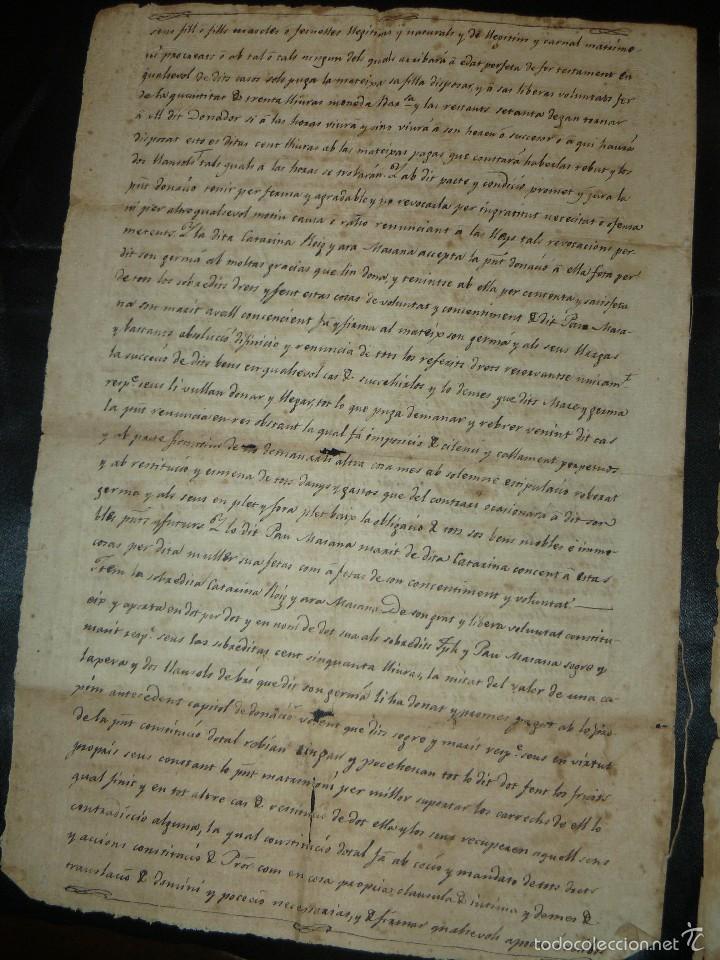 seus fill ó fills mascles ó femelles llegitims y naturals y de llegitim y carnal matrimo
ni procreats ó ab tal ó tals ningun dels quals arribará á edat perfeta de fer testament en
qualsevol de dits casos sols puga la mateixa sa filla disposar, y á sas liberas voluntats fer
de la quantitat de trenta lliuras moneda Barsa. y las restants setanta degan tornar
á ell dit Donador si á las horas viurá y sino viurá á son hereu ó succesor ó á qui haurá
disposat esto es ditas cent lliuras ab las mateixas pagas que constará haberlas rebut y los
dos llansols tals quals á las horas se trobarán. Y ab dit pacte y condició promet y jura la
pnt donació tenir per ferma y agradable y no revocarla per ingratitut necesitat ó ofensa
ni per altre qualsevol motiu causa ó rahó renunciant á la lley tals revocacions per
metents. Y la dita Catarina Roig y ara Masana accepta la pnt donació á ella feta per
dit son germá ab moltas gracias que lin dona, y tenintse ab ella per contenta y satisfeta
de tots los sobredits drets y fent estas cosas de voluntat y consentiment de dit Pau Masa
na son marit avall concencient fa y firma al mateix son germá y als seus llargas
y bastants absolució difinició y renuncia de tots los referits drets reservantse unicamt.
la succeció de dits bens en qualsevol cas de succehirlos y lo demes que dits Mare y germá
respe. seus li vullan donar y llegar, tot lo que puga demanar y rebrer venint dit cas
la pnt renuncia en res obstant la qual fá imposeis de silenci y callament perpetuos
y ab pacte firmissim de no demanar li altra cosa mes ab solemne estipulació roborat
y ab restitució y esmena de tots danys y gastos que del contrari ocasionará á dit son
germá y als seus en plet y fora plet baix la obligació de tots sos bens mobles é immo
bles pnts y futurs. Y lo dit Pau Masana marit de dita Catarina concent á estas
cosas per dita muller sua fetas com á fetas de son concentiment y voluntat.
Item la sobredita Catarina Roig y ara Masana De son grat y libera voluntat constitu
eix y aporta en dot per dot y en nom de dot sua als sobredits Jph y Pau Masana sogre y
marit respe. seus las sobreditas cent sinquanta lliuras, la mitat del valer de una ca
lapera y dos llansols de bri que dit son germá li ha donat y promes pagar ab lo pro
pim antecedent capitol de donació volent que dits sogre y marit respe. seus en virtut
de la pnt constitució dotal robian tingan y pocehescan tot lo dit dot fent los fruits
propris seus constant lo pnt matrimoni per millor suportar los carrechs de ell lo
qual finit y en tot altre cas de restitució de dot ella y los seus recuperen aquell sens
contradicció alguna, la qual constitució dotal fa ab cecio y mandato de tots drets
y accions constitució de Pror com en cosa propria, clausula de intima y demes de
translació de domini y poceció necessarias, y de firmar qualsevols apocas
todocoleccion.net